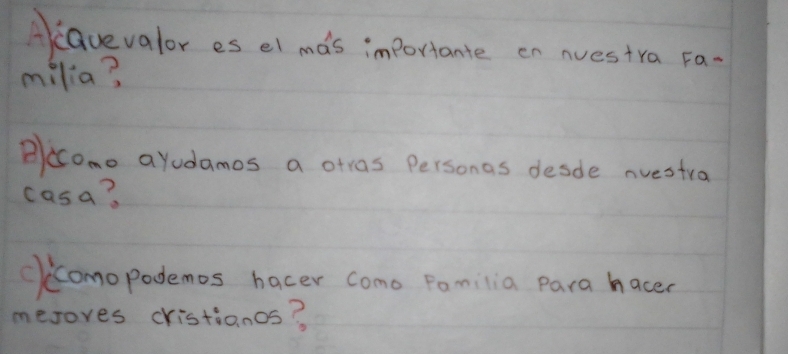 A) ¿que valor es el más importante en nuestra Fa-
milia?
B) ¿como ayudamos a otras Personas desde nuestra
casa?
C) ¿como podemos hacer como Familia Para hacer
mejores cristianos?